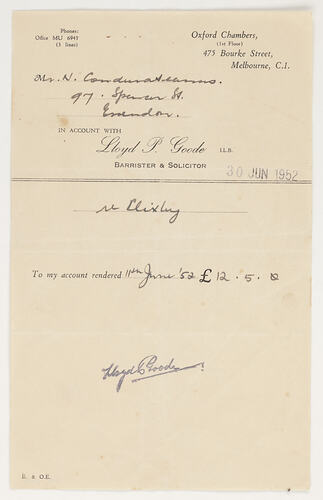 Phones:
Office MU 6947
(3 lines)
Oxford Chambers,
(1st Floor)
475 Bourke Street,
Melbourne, C.1.
Mr. N.
97. Spencer St.
Essendon.
IN ACCOUNT WITH
Lloyd P. Goode LL.B.
BARRISTER & SOLICITOR
30 JUN 1952
To my account rendered 11th June '52 £12.5.0
Lloyd P Goode
E. & O.E.